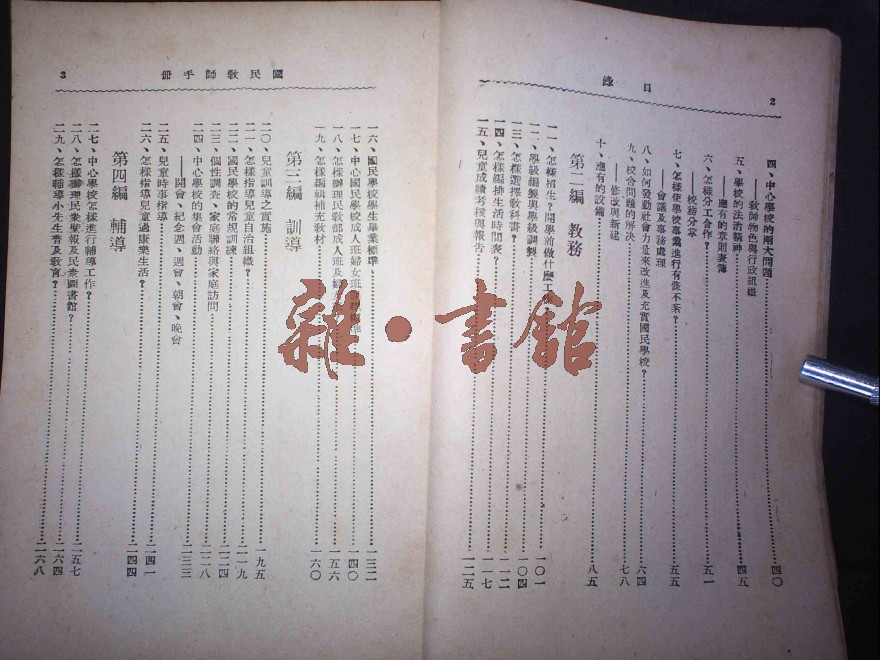 目錄
2
四、中心學校的兩大問題……四〇
——教師物色與行政組織
五、學校的法治精神……四五
——應有的章則表簿
六、怎樣分工合作？……五一
——校務分掌
七、怎樣使學校事業進行有條不紊？……五五
——會議及事務處理
八、如何發動社會力量來改進及充實國民學校？……六四
九、校舍問題的解決……七八
——修改與新建
十、應有的設備……八五
第二編 教務
一一、怎樣招生？開學前做什麼工……一〇一
一二、學級編製與學級調製……一〇四
一三、怎樣選擇教科書？……一一二
一四、怎樣編排生活時間表？……一一七
一五、兒童成績考核與報告……一二五
國民教師手冊
3
一六、國民學校學生畢業標準……一三二
一七、中心國民學校成人班婦女班……一四〇
一八、怎樣辦理民教部成人班及婦……一五六
一九、怎樣編輯補充教材……一六〇
第三編 訓導
二〇、兒童訓導之實施……一九五
二一、怎樣指導兒童自治組織？……二一九
二二、國民學校的常規訓練……二二四
二三、個性調查、家庭聯絡與家庭訪問……二二八
二四、中心學校的集會活動……二三三
——開會、紀念週、週會、朝會、晚會
二五、兒童時事指導……二四一
二六、怎樣指導兒童過康樂生活？……二四四
第四編 輔導
二七、中心學校怎樣進行輔導工作？……二五七
二八、怎樣辦理民衆壁報及民衆圖書館？……二六四
二九、怎樣輔導小先生普及教育？……二六八
雜·書館